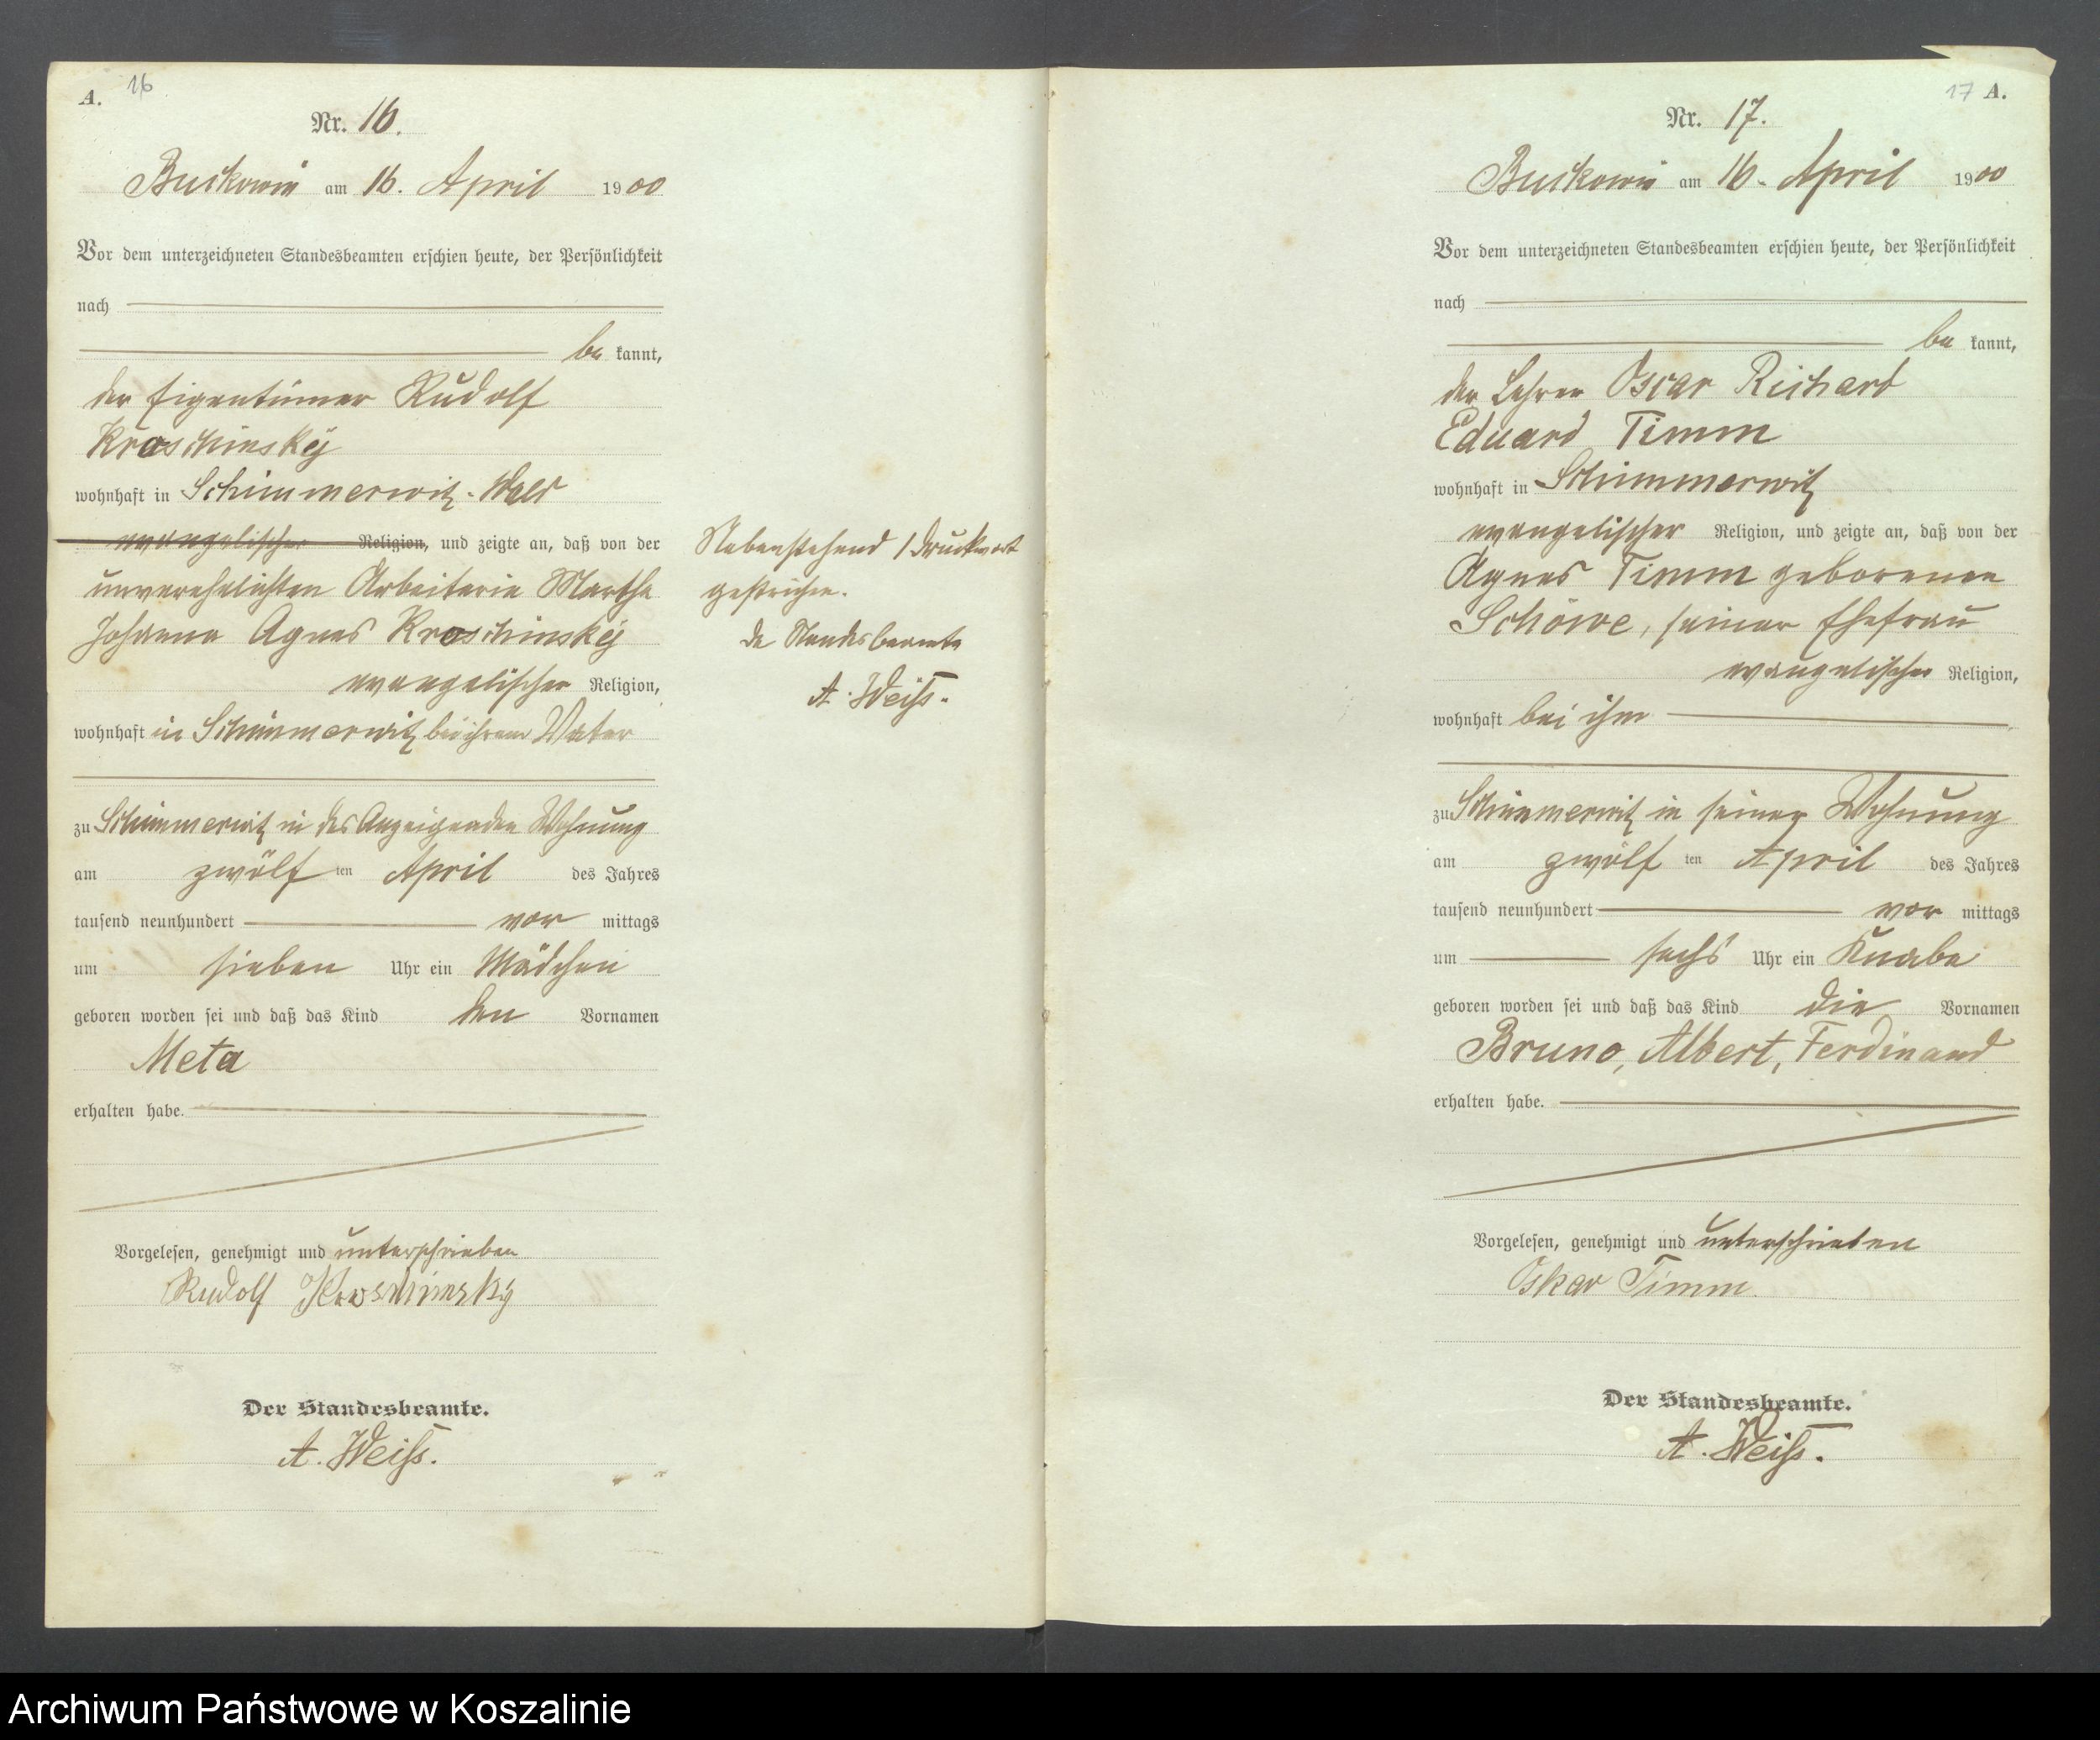 A. 16
Nr. 16.
Buckowin am 16. April 1900
Vor dem unterzeichneten Standesbeamten erschien heute, der Persönlichkeit
nach
be kannt,
der Eigentümer Rudolf
Kroschinsky
wohnhaft in Schimmerwitz-Wald
evangelischer Religion, und zeigte an, daß von der
unverehelichten Arbeiterin Martha
Johanna Agnes Kroschinsky
evangelischer Religion,
wohnhaft in Schimmerwitz bei ihrem Vater
zu Schimmerwitz in des Anzeigenden Wohnung
am zwölf ten April des Jahres
tausend neunhundert vor mittags
um sieben Uhr ein Mädchen
geboren worden sei und daß das Kind den Vornamen
Meta
erhalten habe.
Vorgelesen, genehmigt und unterschrieben
Rudolf Kroschinsky
Der Standesbeamte.
A. Weiss.
Nebenstehend 1 Druckwort
gestrichen.
De Standesbeamte
A. Weiss.
17 A.
Nr. 17.
Buckowin am 16. April 1900
Vor dem unterzeichneten Standesbeamten erschien heute, der Persönlichkeit
nach
be kannt,
der Lehrer Oscar Richard
Eduard Timm
wohnhaft in Schimmerwitz
evangelischer Religion, und zeigte an, daß von der
Agnes Timm geborenen
Schöwe, seiner Ehefrau
evangelischer Religion,
wohnhaft bei ihm
zu Schimmerwitz in seiner Wohnung
am zwölf ten April des Jahres
tausend neunhundert vor mittags
um sechs Uhr ein Knabe
geboren worden sei und daß das Kind die Vornamen
Bruno, Albert, Ferdinand
erhalten habe.
Vorgelesen, genehmigt und unterschrieben
Oskar Timm
Der Standesbeamte.
A. Weiss.
Archiwum Państwowe w Koszalinie